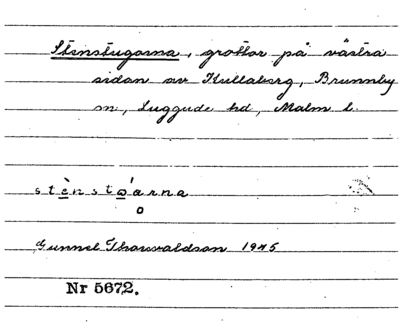 Stenstugorna, grottor på västra
sidan av Kullaberg, Brunnby
sn, Luggude hd, Malm l.
stènstǿarna
o
Gunnel Thorvaldson 1945
Nr 5672.